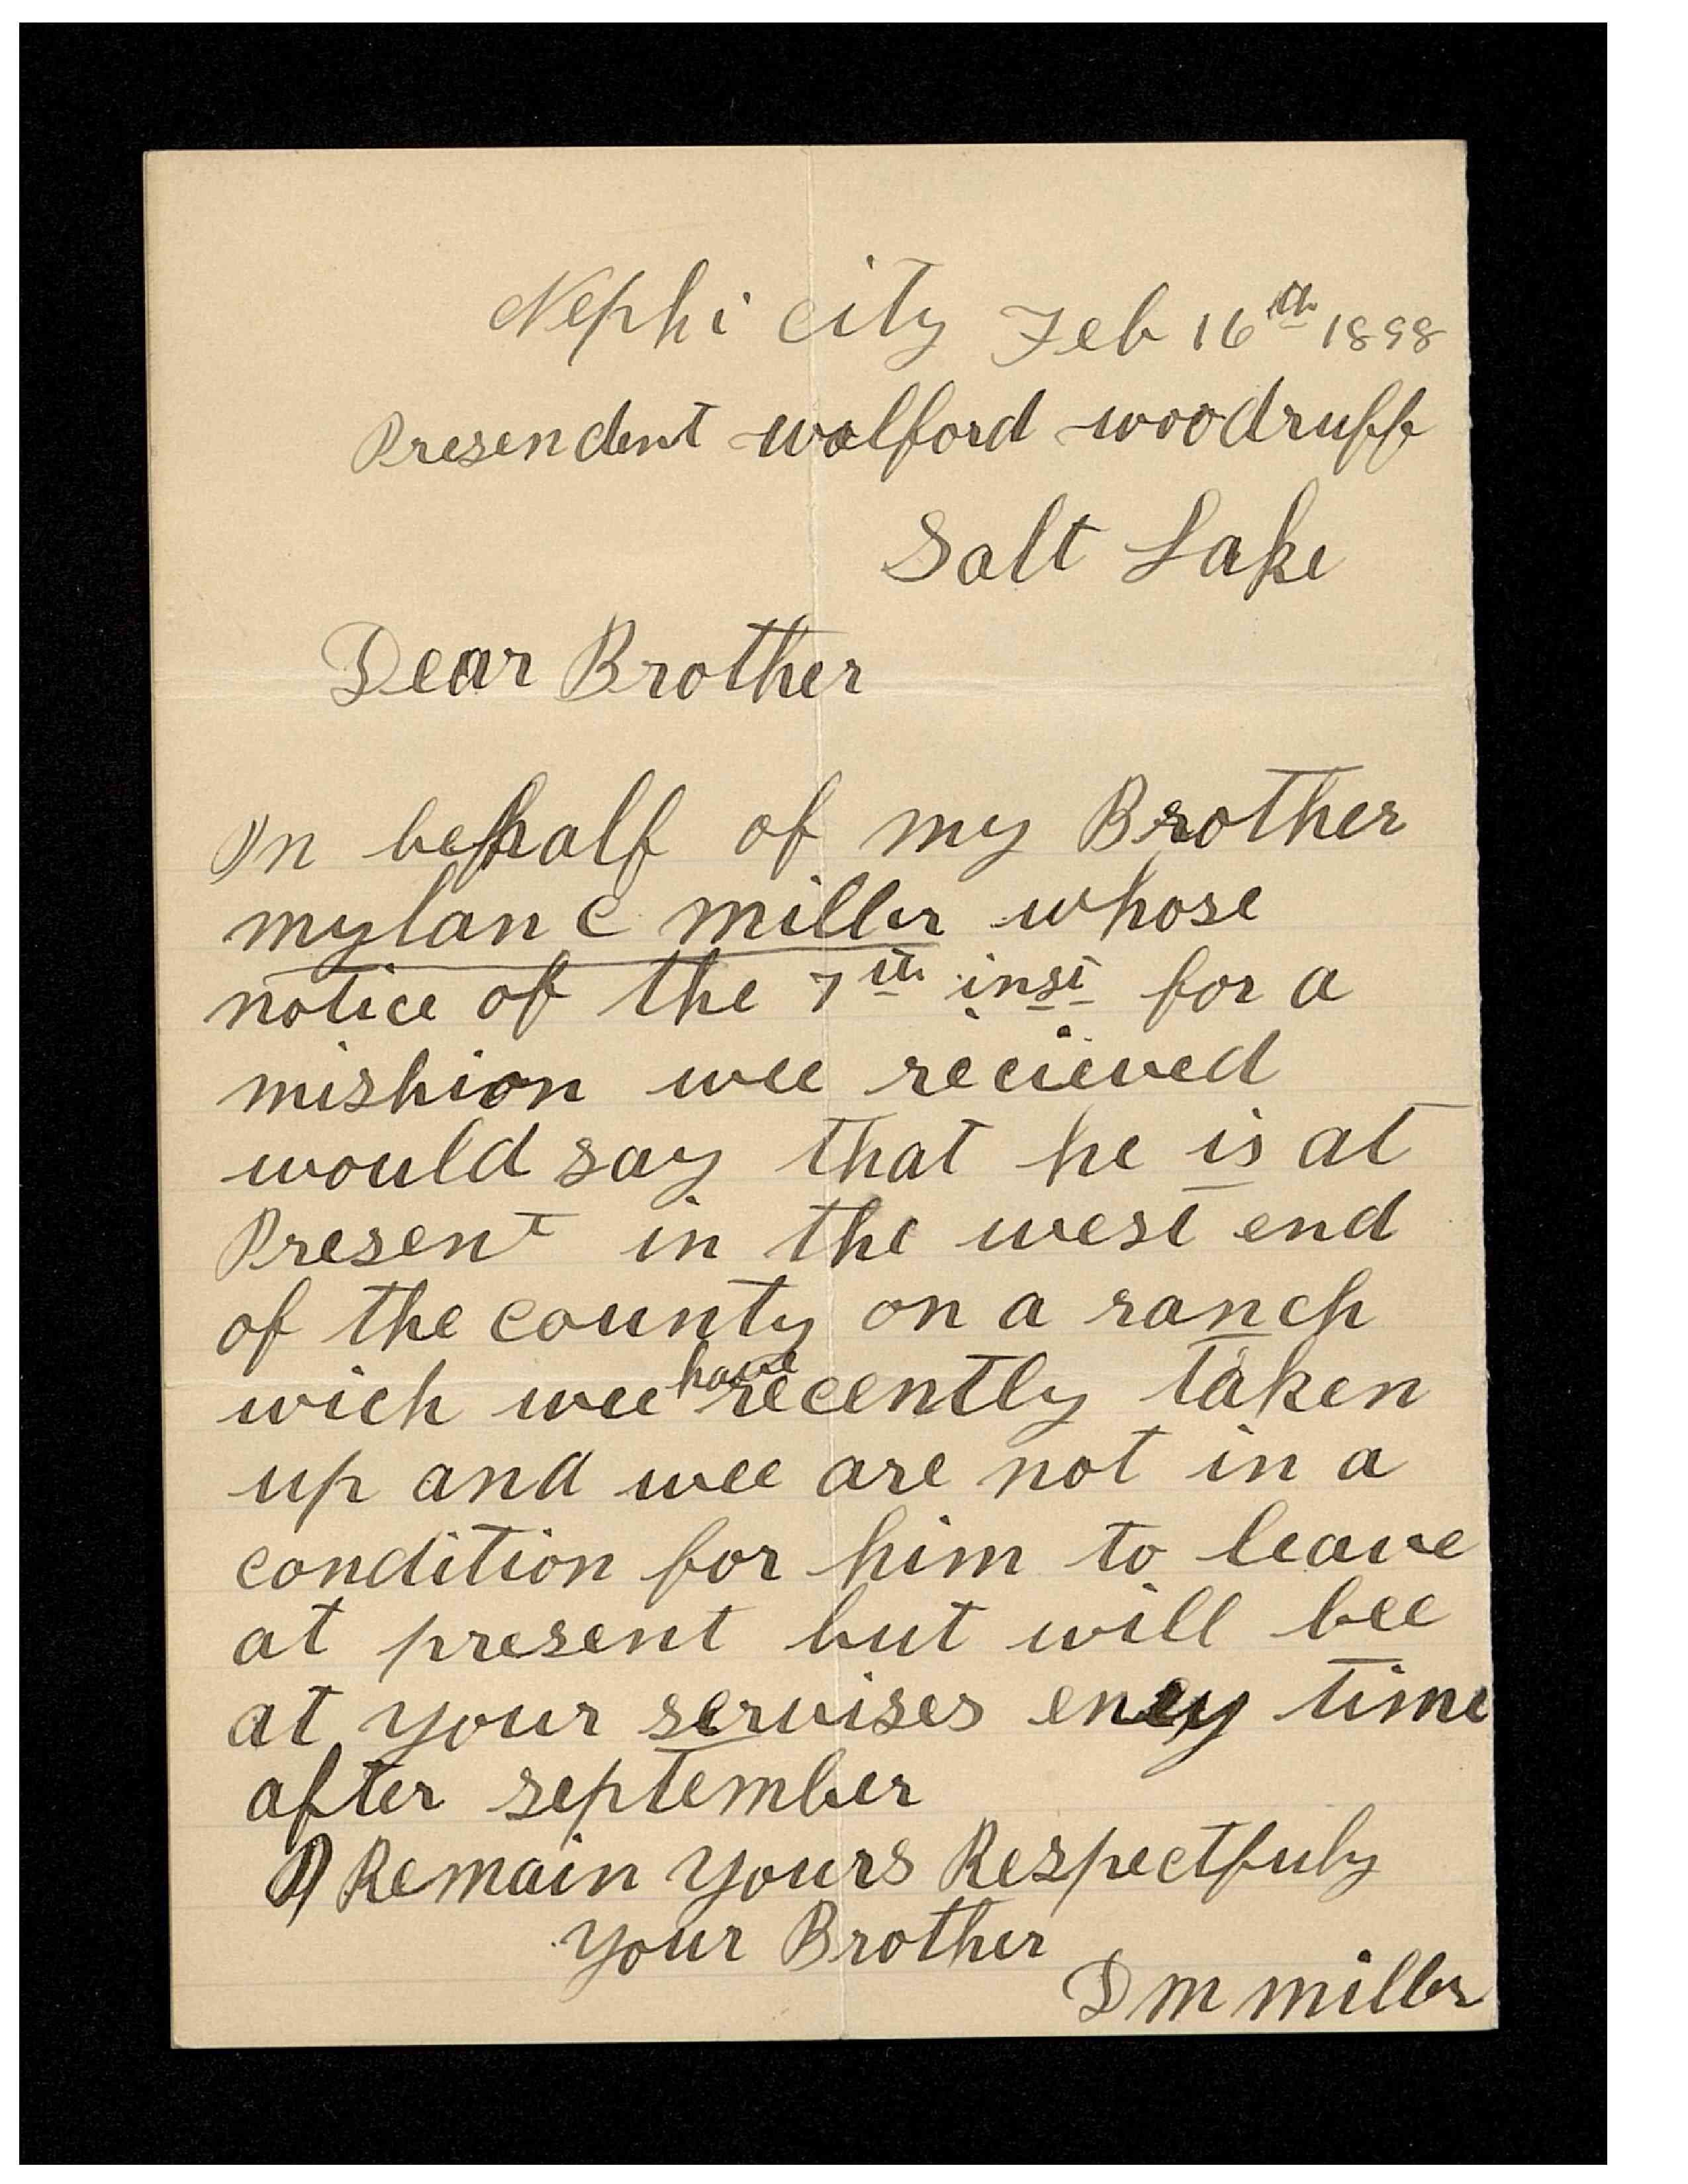 Nephi city Feb 16th 1898
Presendent wolford woodruff
Salt Lake
Dear Brother
In behalf of my Brother
mylan C miller whose
notice of the 7th inst for a
mishion wee recieved
would say that he is at
Present in the west end
of the county on a ranch
wich wee have recently taken
up and wee are not in a
condition for him to leave
at present but will bee
at your servises eney time
after september
I Remain yours Respectfuly
your Brother
D M miller